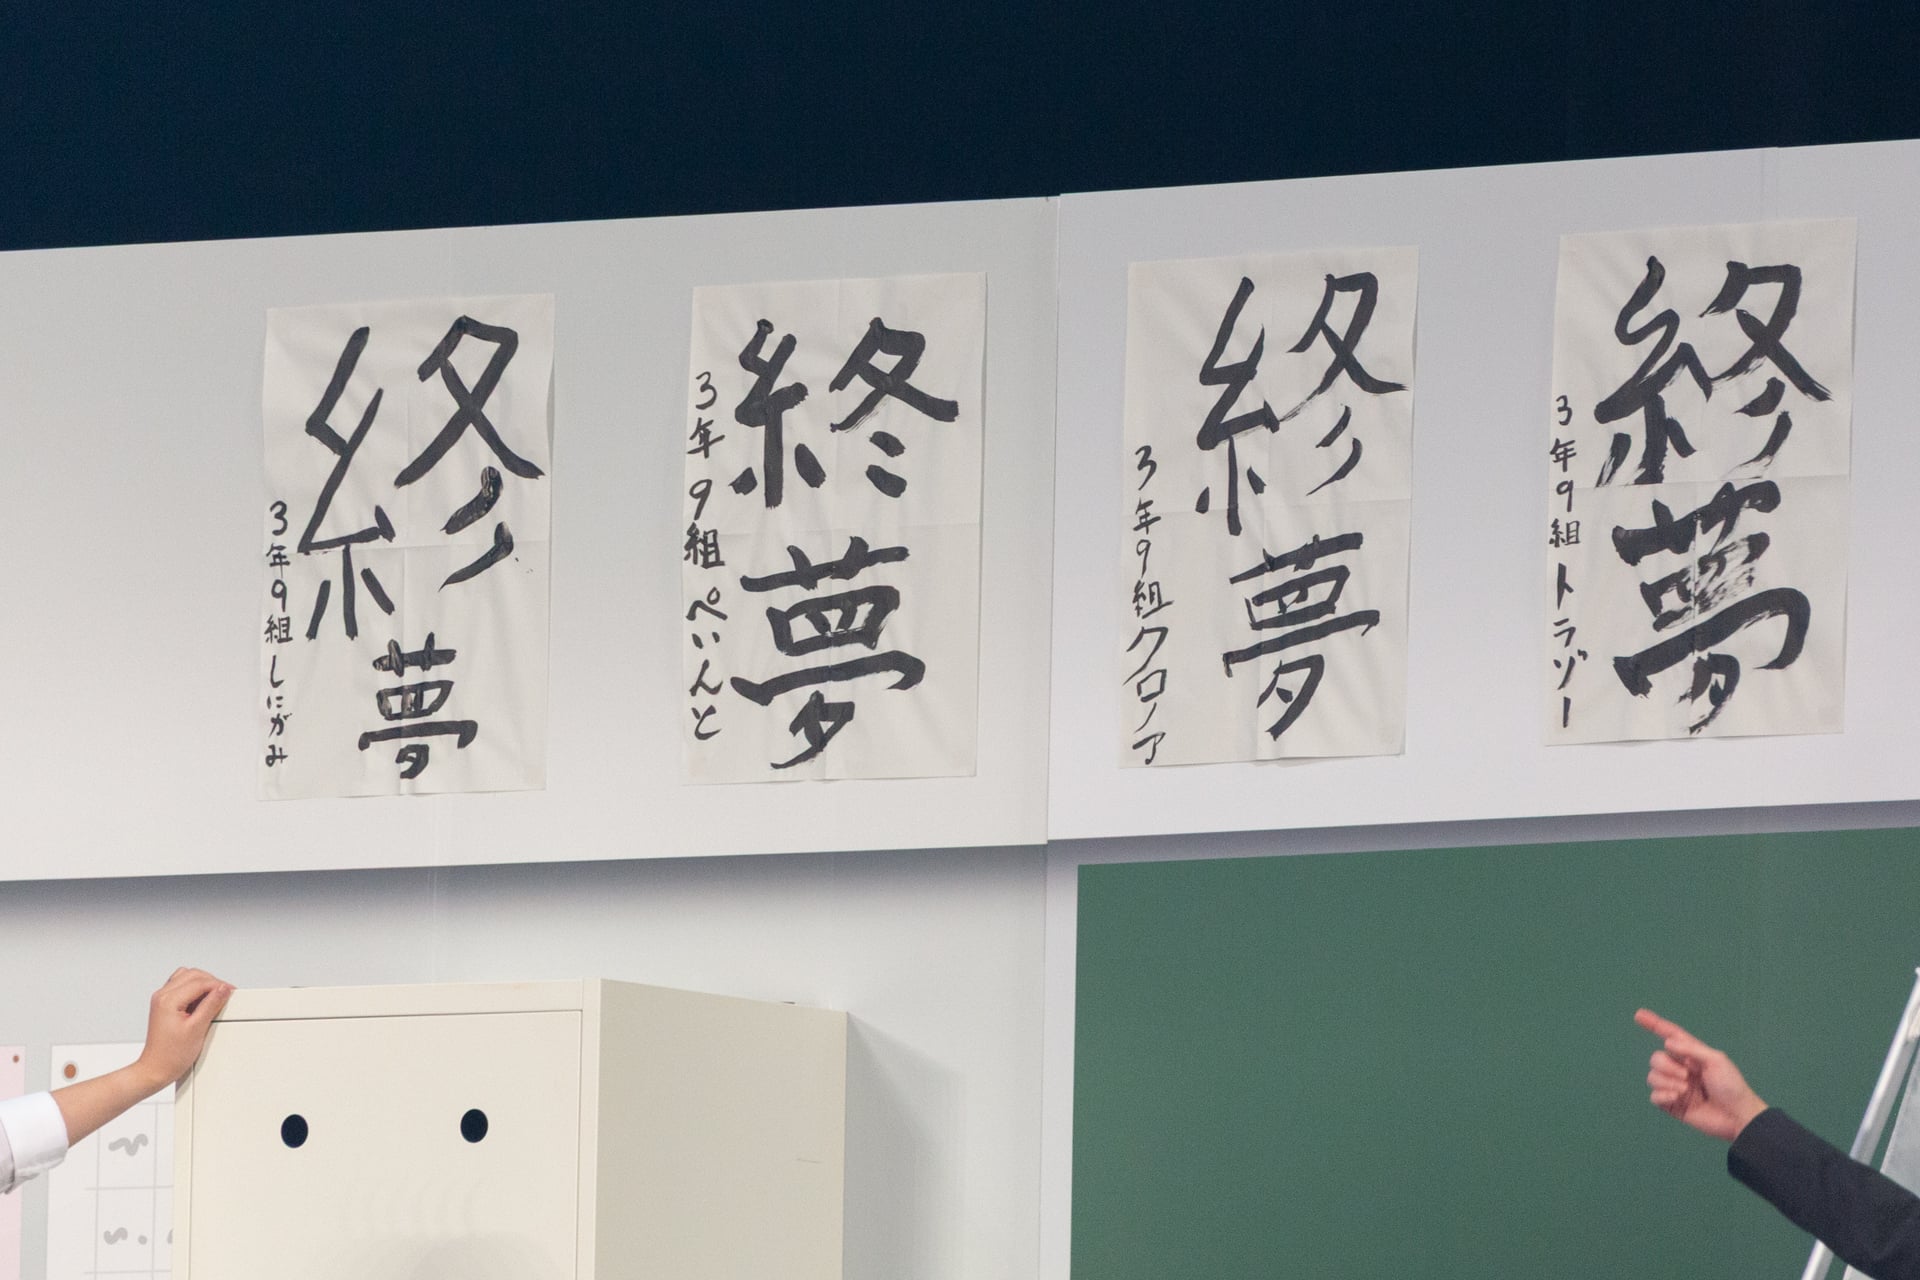 終夢
3年9組トラゾー
終夢
3年9組クロノア
終夢
3年9組ぺいんと
終夢
3年9組しにがみ